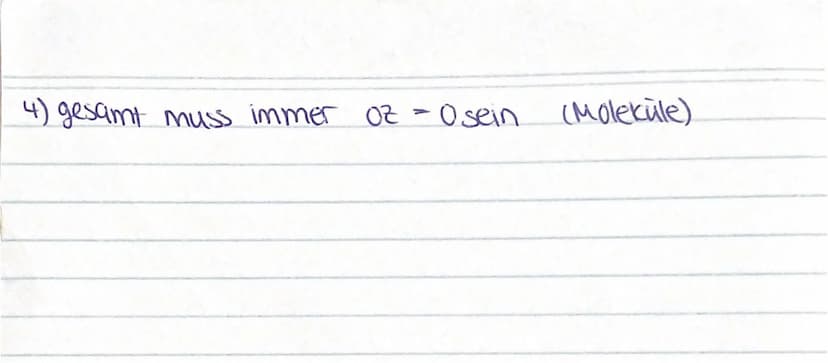 4) gesamt muss immer OZ = 0 sein (Moleküle)